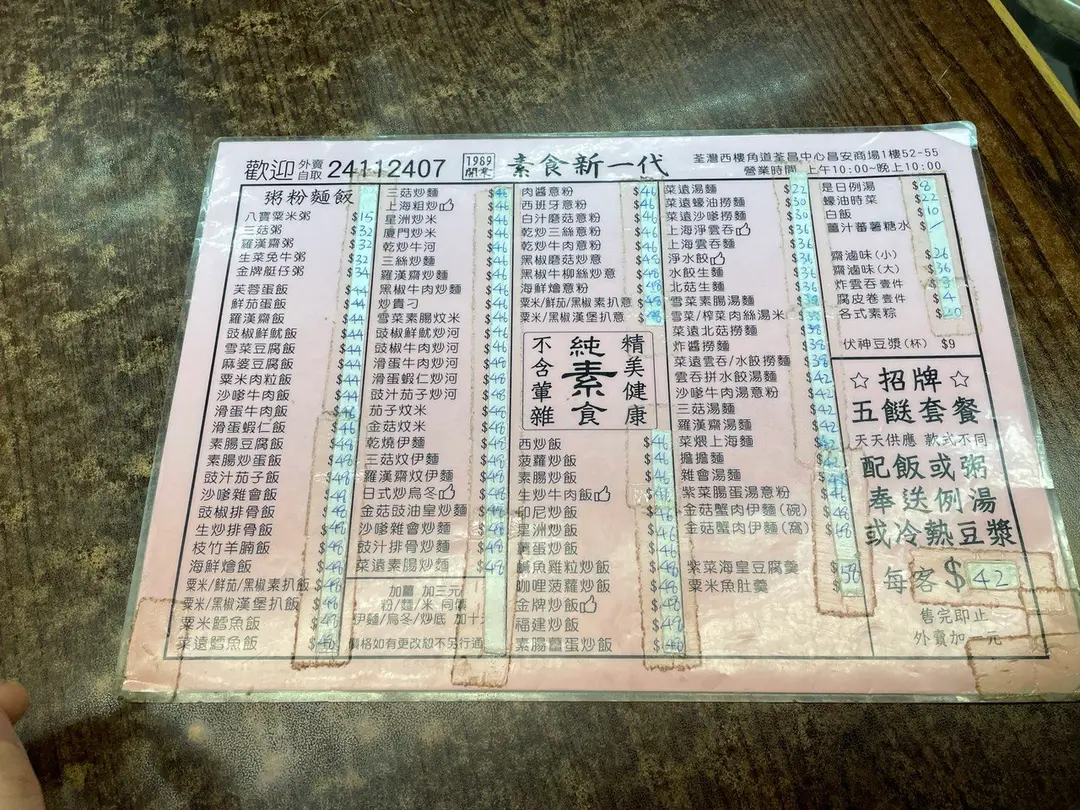 歡迎 外賣自取 24112407 1989 開業 素食新一代 荃灣西樓角道荃昌中心昌安商場1樓52-55
營業時間:上午10:00~晚上10:00
粥粉麵飯
八寶粟米粥 $15
三菇粥 $32
羅漢齋粥 $32
生菜免牛粥 $32
金牌艇仔粥 $34
芙蓉蛋飯 $44
鮮茄蛋飯 $44
羅漢齋飯 $44
豉椒鮮魷飯 $44
雪菜豆腐飯 $44
麻婆豆腐飯 $44
粟米肉粒飯 $44
沙嗲牛肉飯 $44
滑蛋牛肉飯 $46
滑蛋蝦仁飯 $48
素腸豆腐飯 $48
素腸炒蛋飯 $48
豉汁茄子飯 $48
沙嗲雜會飯 $48
豉椒排骨飯 $48
生炒排骨飯 $48
枝竹羊腩飯 $48
海鮮燴飯 $48
粟米/鮮茄/黑椒素扒飯 $48
粟米/黑椒漢堡扒飯 $48
粟米鱈魚飯
菜遠鱈魚飯
三菇炒麵 $46
上海粗炒 $46
星洲炒米 $46
廈門炒米 $46
乾炒牛河 $46
三絲炒麵 $46
羅漢齋炒麵 $46
黑椒牛肉炒麵 $46
炒貴刁 $46
雪菜素腸炆米 $46
豉椒鮮魷炒河 $46
豉椒牛肉炒河 $46
滑蛋牛肉炒河 $48
滑蛋蝦仁炒河 $48
豉汁茄子炒河 $48
茄子炆米 $48
金菇炆米 $48
乾燒伊麵 $48
三菇炆伊麵 $48
羅漢齋炆伊麵 $48
日式炒烏冬 $48
金菇豉油皇炒麵 $48
沙嗲雜會炒麵 $48
豉汁排骨炒麵 $48
菜遠素腸炒麵 $48
加薑 加三元
粉/麵/米 同價
伊麵/烏冬/炒底 加十
價格如有更改恕不另行通
肉醬意粉 $46
西班牙意粉 $46
白汁磨菇意粉 $46
乾炒三絲意粉 $46
乾炒牛肉意粉 $46
黑椒磨菇炒意 $48
黑椒牛柳絲炒意 $48
海鮮燴意粉 $48
粟米/鮮茄/黑椒素扒意 $48
粟米/黑椒漢堡扒意 $48
不含葷雜
純素食
精美健康
西炒飯 $46
菠蘿炒飯 $46
素腸炒飯 $46
生炒牛肉飯 $46
印尼炒飯 $46
星洲炒飯 $46
薑蛋炒飯 $46
鹹魚雞粒炒飯 $48
咖哩菠蘿炒飯 $48
金牌炒飯 $48
福建炒飯 $48
素腸薑蛋炒飯 $48
菜遠湯麵 $22
菜遠蠔油撈麵 $30
菜遠沙嗲撈麵 $30
上海淨雲吞 $36
上海雲吞麵 $36
淨水餃 $36
水餃生麵 $36
北菇生麵 $36
雪菜素腸湯麵
雪菜/榨菜肉絲湯米 $38
菜遠北菇撈麵 $38
炸醬撈麵 $38
菜遠雲吞/水餃撈麵 $38
雲吞拼水餃湯麵 $42
沙嗲牛肉湯意粉 $42
三菇湯麵 $42
羅漢齋湯麵 $42
菜煨上海麵 $42
擔擔麵
雜會湯麵
紫菜腸蛋湯意粉 $46
金菇蟹肉伊麵(碗) $48
金菇蟹肉伊麵(窩)
紫菜海皇豆腐羹 $58
粟米魚肚羹
是日例湯 $8
蠔油時菜 $22
白飯 $10
薑汁蕃薯糖水
齋滷味(小) $26
齋滷味(大) $36
炸雲吞 壹件
腐皮卷 壹件 $4
各式素粽 $20
伏神豆漿(杯) $9
☆招牌☆
五餸套餐
天天供應 款式不同
配飯或粥
奉送例湯
或冷熱豆漿
每客$42
售完即止
外賣加 元